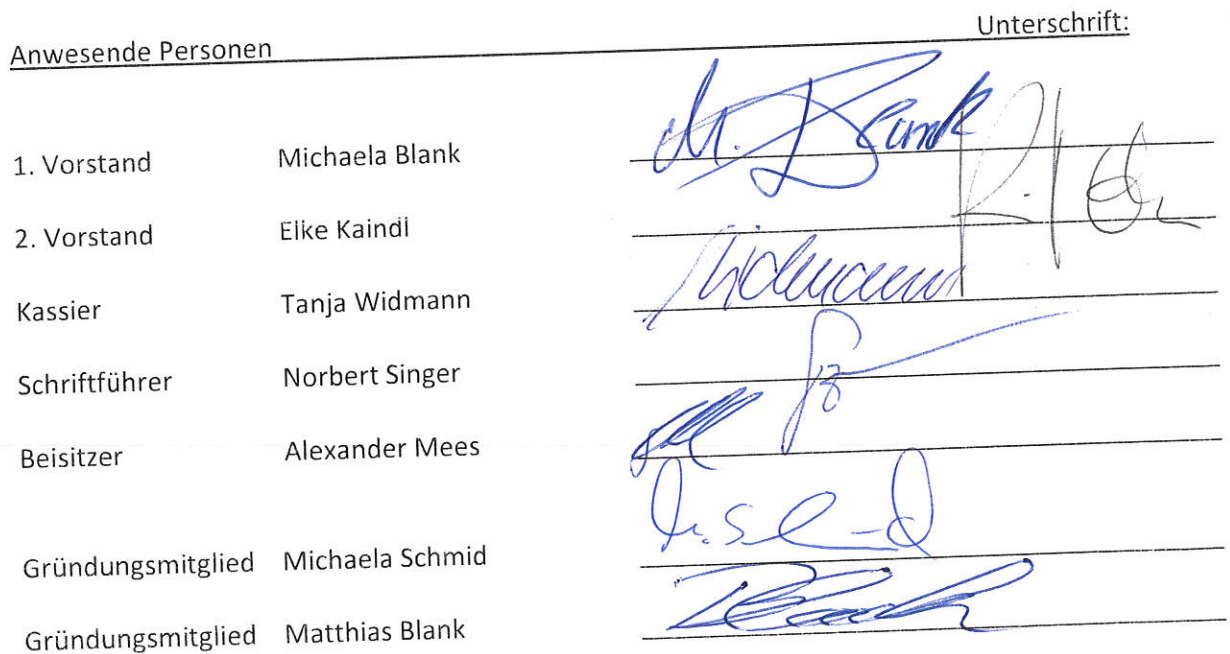 Anwesende Personen Unterschrift:
1. Vorstand Michaela Blank M. Blank
2. Vorstand Elke Kaindl
Kassier Tanja Widmann Widmann
Schriftführer Norbert Singer
Beisitzer Alexander Mees
Gründungsmitglied Michaela Schmid M. Schmid
Gründungsmitglied Matthias Blank Blank